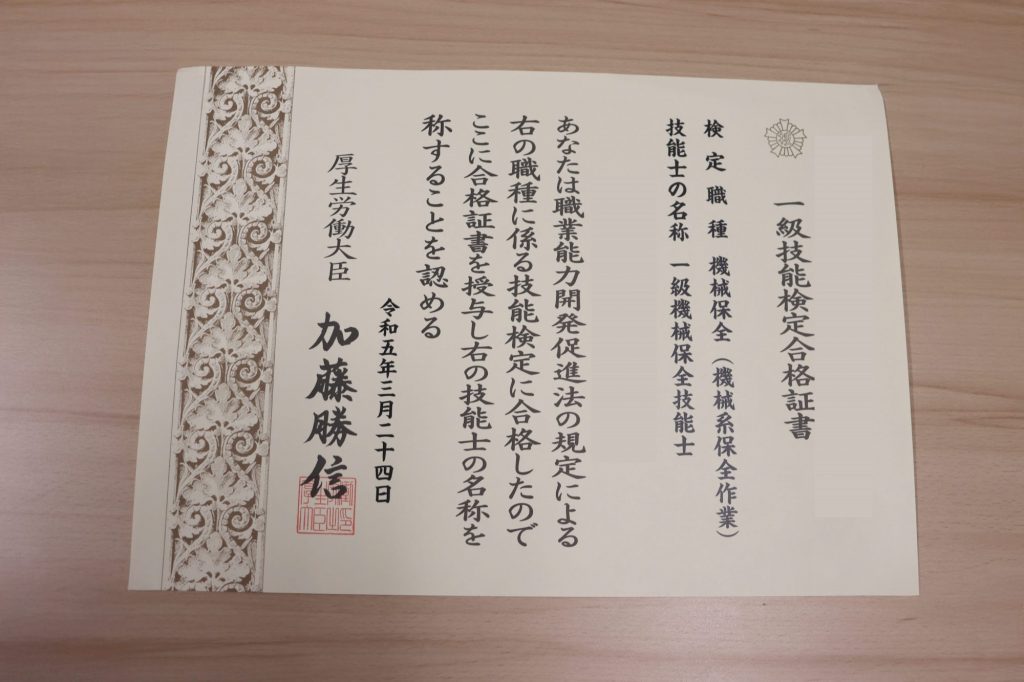 一級技能検定合格証書
検定職種 機械保全(機械系保全作業)
技能士の名称 一級機械保全技能士
あなたは職業能力開発促進法の規定による
右の職種に係る技能検定に合格したので
ここに合格証書を授与し右の技能士の名称を
称することを認める
令和五年三月二十四日
厚生労働大臣 加藤勝信